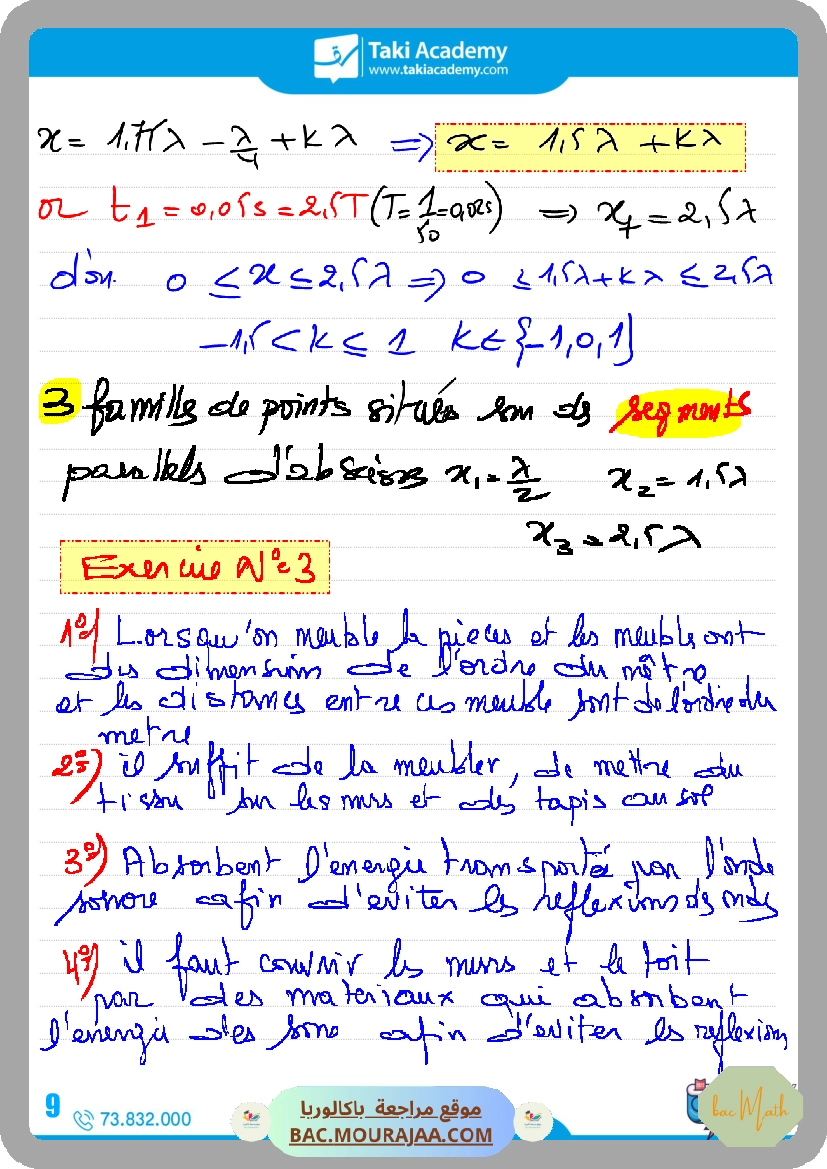 Taki Academy
www.takiacademy.com
x = 1,75λ - λ/4 + kλ ⇒ x = 1,5λ + kλ
or t1 = 0,05s = 2,5T (T = 1/50 = 0,02s) ⇒ xf = 2,5λ
d'où 0 ≤ x ≤ 2,5λ ⇒ 0 ≤ 1,5λ + kλ ≤ 2,5λ
-1,5 < k ≤ 1 k ∈ {-1,0,1}
3 famille de points situés sur des segments
parallels d'abscisses x1 = λ/2 x2 = 1,5λ
x3 = 2,5λ
Exercice N°3
1°/ Lorsqu'on meuble la pieces et les meubles ont
des dimension de l'ordre du mètre
et les distances entre ces meuble sont de l'ordre du
metre
2°) il suffit de la meubler, de mettre du
tissu sur les murs et des tapis au sol
3°) Absorbent l'energie transportée par l'onde
sonore afin d'eviter les reflexions des ondes
4°) il faut couvrir les murs et le toit
par des materiaux qui absorbent
l'energie des sons afin d'eviter les reflexions
9
73.832.000
موقع مراجعة باكالوريا
BAC.MOURAJAA.COM
bac Math